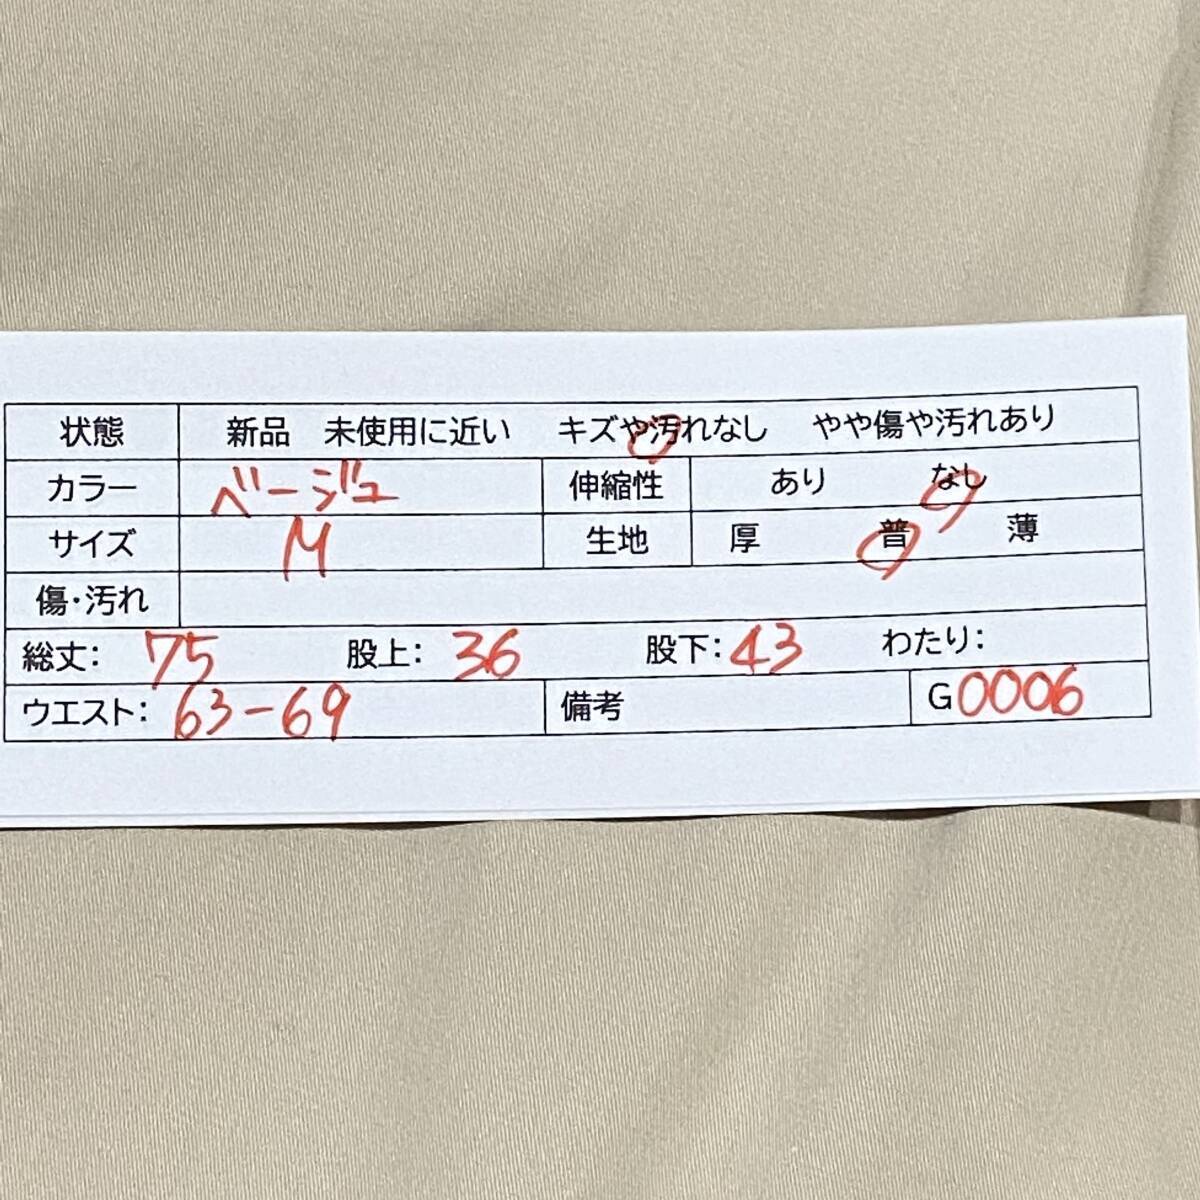 状態 新品 未使用に近い キズや汚れなし やや傷や汚れあり
カラー ベージュ 伸縮性 あり なし
サイズ M 生地 厚 普 薄
傷・汚れ
総丈: 75 股上: 36 股下: 43 わたり:
ウエスト: 63-69 備考 G0006